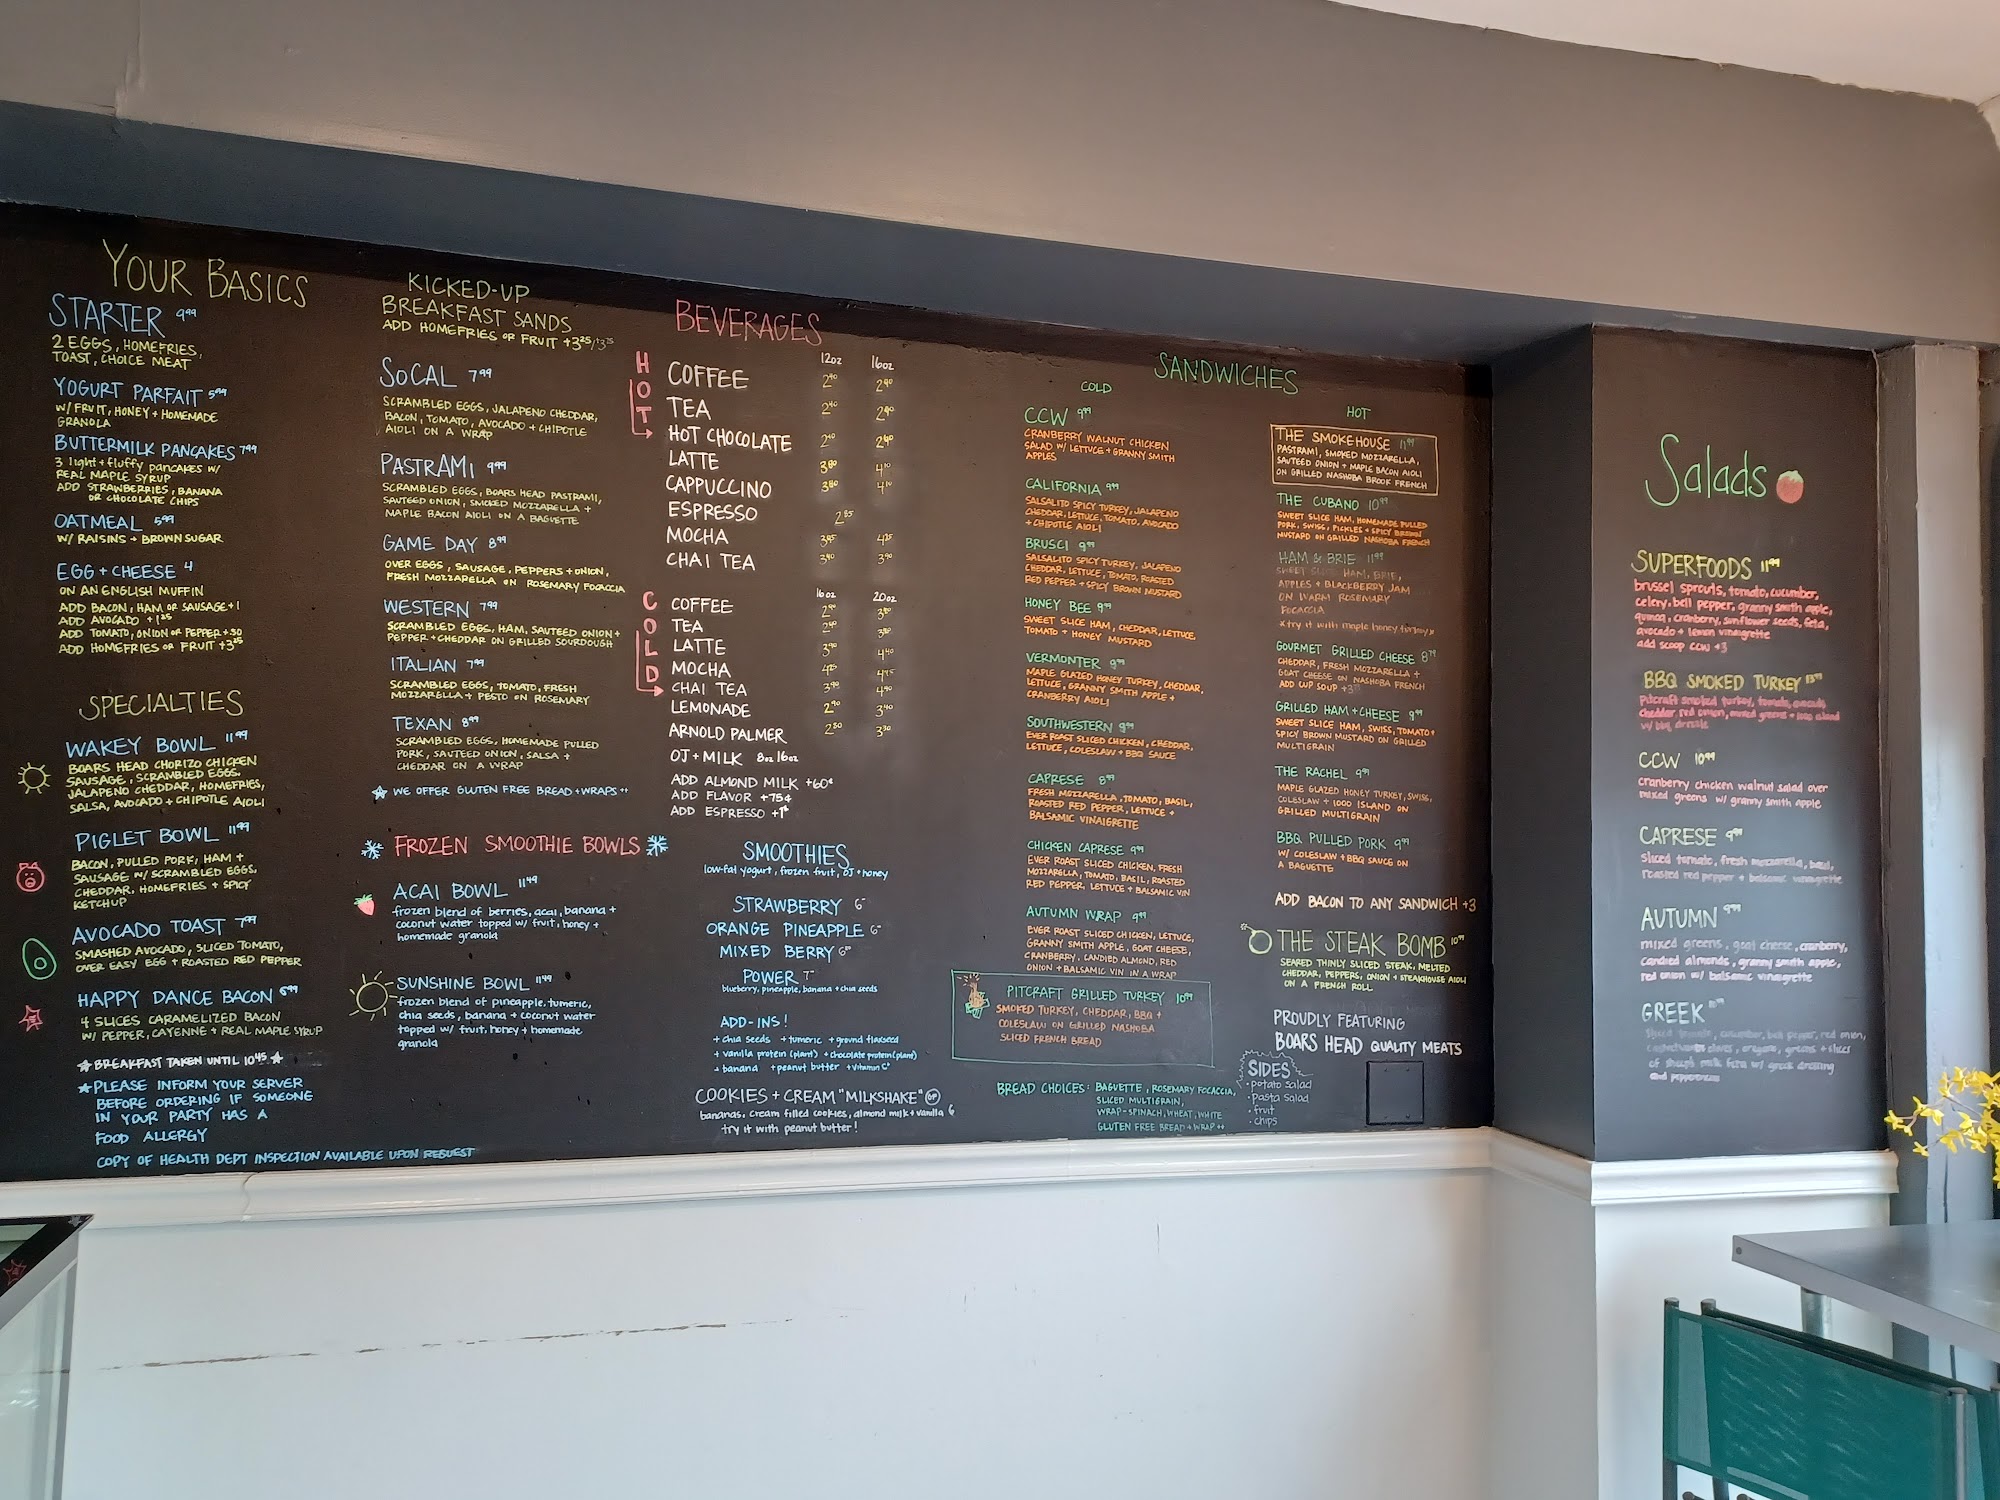 YOUR BASICS
STARTER 9.99
2 EGGS, HOMEFRIES,
TOAST, CHOICE MEAT
YOGURT PARFAIT 5.99
W/ FRUIT, HONEY + HOMEMADE
GRANOLA
BUTTERMILK PANCAKES 7.99
3 light + fluffy pancakes w/
REAL MAPLE SYRUP
ADD STRAWBERRIES, BANANA
OR CHOCOLATE CHIPS
OATMEAL 5.99
W/ RAISINS + BROWN SUGAR
EGG + CHEESE 4
ON AN ENGLISH MUFFIN
ADD BACON, HAM OR SAUSAGE +1
ADD AVOCADO +1.25
ADD TOMATO, ONION OR PEPPER +.50
ADD HOMEFRIES OR FRUIT +3.25
SPECIALTIES
WAKEY BOWL 11.99
BOARS HEAD CHORIZO CHICKEN
SAUSAGE, SCRAMBLED EGGS,
JALAPENO CHEDDAR, HOMEFRIES,
SALSA, AVOCADO + CHIPOTLE AIOLI
PIGLET BOWL 11.99
BACON, PULLED PORK, HAM +
SAUSAGE W/ SCRAMBLED EGGS,
CHEDDAR, HOMEFRIES + SPICY
KETCHUP
AVOCADO TOAST 7.99
SMASHED AVOCADO, SLICED TOMATO,
OVER EASY EGG + ROASTED RED PEPPER
HAPPY DANCE BACON
4 SLICES CARAMELIZED BACON
W/ PEPPER, CAYENNE + REAL MAPLE SYRUP
BREAKFAST TAKEN UNTIL 10:45
PLEASE INFORM YOUR SERVER
BEFORE ORDERING IF SOMEONE
IN YOUR PARTY HAS A
FOOD ALLERGY
COPY OF HEALTH DEPT INSPECTION AVAILABLE UPON REQUEST
KICKED-UP
BREAKFAST SANDS
ADD HOMEFRIES OR FRUIT +3.25
SOCAL 7.99
SCRAMBLED EGGS, JALAPENO CHEDDAR,
BACON, TOMATO, AVOCADO + CHIPOTLE
AIOLI ON A WRAP
PASTRAMI 9.99
SCRAMBLED EGGS, BOARS HEAD PASTRAMI,
SAUTEED ONION, SMOKED MOZZARELLA +
MAPLE BACON AIOLI ON A BAGUETTE
GAME DAY 8.99
OVER EGGS, SAUSAGE, PEPPERS + ONION,
FRESH MOZZARELLA ON ROSEMARY FOCACCIA
WESTERN 7.99
SCRAMBLED EGGS, HAM, SAUTEED ONION +
PEPPER + CHEDDAR ON GRILLED SOURDOUGH
ITALIAN 7.99
SCRAMBLED EGGS, TOMATO, FRESH
MOZZARELLA + PESTO ON ROSEMARY
TEXAN 8.99
SCRAMBLED EGGS, HOMEMADE PULLED
PORK, SAUTEED ONION, SALSA +
CHEDDAR ON A WRAP
WE OFFER GLUTEN FREE BREAD + WRAPS ++
FROZEN SMOOTHIE BOWLS
ACAI BOWL 11.49
frozen blend of berries, acai, banana +
coconut water topped w/ fruit, honey +
homemade granola
SUNSHINE BOWL 11.49
frozen blend of pineapple, tumeric,
chia seeds, banana + coconut water
topped w/ fruit, honey + homemade
granola
BEVERAGES
HOT
12oz 16oz
COFFEE 2.40 2.90
TEA 2.40 2.90
HOT CHOCOLATE 2.40 2.90
LATTE 3.80 4.10
CAPPUCCINO 3.80 4.10
ESPRESSO 2.85
MOCHA 3.95 4.25
CHAI TEA 3.40 3.90
COLD
16oz 20oz
COFFEE
TEA
LATTE 3.90 4.40
MOCHA
CHAI TEA 3.90 4.90
LEMONADE 2.90 3.40
ARNOLD PALMER 2.80 3.30
OJ + MILK 8oz 16oz
ADD ALMOND MILK +60¢
ADD FLAVOR +75¢
ADD ESPRESSO
SMOOTHIES
low-fat yogurt, frozen fruit, OJ + honey
STRAWBERRY 6
ORANGE PINEAPPLE 6
MIXED BERRY 6
POWER 7
blueberry, pineapple, banana + chia seeds
ADD-INS!
+ chia seeds + tumeric + ground flaxseed
+ vanilla protein (plant) + chocolate protein (plant)
+ banana + peanut butter + vitamin C
COOKIES + CREAM "MILKSHAKE"
bananas, cream filled cookies, almond milk + vanilla 6
try it with peanut butter!
SANDWICHES
COLD
CCW 9.99
CRANBERRY WALNUT CHICKEN
SALAD W/ LETTUCE + GRANNY SMITH
APPLES
CALIFORNIA 9.99
SALSALITO SPICY TURKEY, JALAPENO
CHEDDAR, LETTUCE, TOMATO, AVOCADO
+ CHIPOTLE AIOLI
BRUSCI 9.99
SALSALITO SPICY TURKEY, JALAPENO
CHEDDAR, LETTUCE, TOMATO, ROASTED
RED PEPPER + SPICY BROWN MUSTARD
HONEY BEE 9.99
SWEET SLICE HAM, CHEDDAR, LETTUCE,
TOMATO + HONEY MUSTARD
VERMONTER 9.99
MAPLE GLAZED HONEY TURKEY, CHEDDAR,
LETTUCE, GRANNY SMITH APPLE +
CRANBERRY AIOLI
SOUTHWESTERN 9.99
EVER ROAST SLICED CHICKEN, CHEDDAR,
LETTUCE, COLESLAW + BBQ SAUCE
CAPRESE 8.99
FRESH MOZZARELLA, TOMATO, BASIL,
ROASTED RED PEPPER, LETTUCE +
BALSAMIC VINAIGRETTE
CHICKEN CAPRESE 9.99
EVER ROAST SLICED CHICKEN, FRESH
MOZZARELLA, TOMATO, BASIL, ROASTED
RED PEPPER, LETTUCE + BALSAMIC VIN
AUTUMN WRAP 9.99
EVER ROAST SLICED CHICKEN, LETTUCE,
GRANNY SMITH APPLE, GOAT CHEESE,
CRANBERRY, CANDIED ALMOND, RED
ONION + BALSAMIC VIN IN A WRAP
PITCRAFT GRILLED TURKEY 10.99
SMOKED TURKEY, CHEDDAR, BBQ +
COLESLAW ON GRILLED NASHOBA
SLICED FRENCH BREAD
BREAD CHOICES: BAGUETTE, ROSEMARY FOCACCIA,
SLICED MULTIGRAIN,
WRAP-SPINACH, WHEAT, WHITE
GLUTEN FREE BREAD + WRAP ++
HOT
THE SMOKEHOUSE 11.99
PASTRAMI, SMOKED MOZZARELLA,
SAUTEED ONION + MAPLE BACON AIOLI
ON GRILLED NASHOBA BROOK FRENCH
THE CUBANO 10.99
SWEET SLICE HAM, HOMEMADE PULLED
PORK, SWISS, PICKLES + SPICY BROWN
MUSTARD ON GRILLED NASHOBA FRENCH
HAM & BRIE 11.99
SWEET SLICE HAM, BRIE,
APPLES + BLACKBERRY JAM
ON WARM ROSEMARY
FOCACCIA
*try it with maple honey turkey*
GOURMET GRILLED CHEESE 8.79
CHEDDAR, FRESH MOZZARELLA +
GOAT CHEESE ON NASHOBA FRENCH
ADD CUP SOUP
GRILLED HAM + CHEESE 9.99
SWEET SLICE HAM, SWISS, TOMATO +
SPICY BROWN MUSTARD ON GRILLED
MULTIGRAIN
THE RACHEL 9.99
MAPLE GLAZED HONEY TURKEY, SWISS,
COLESLAW + 1000 ISLAND ON
GRILLED MULTIGRAIN
BBQ PULLED PORK 9.99
W/ COLESLAW + BBQ SAUCE ON
A BAGUETTE
ADD BACON TO ANY SANDWICH +3
THE STEAK BOMB 10.99
SEARED THINLY SLICED STEAK, MELTED
CHEDDAR, PEPPERS, ONION + STEAKHOUSE AIOLI
ON A FRENCH ROLL
PROUDLY FEATURING
BOARS HEAD QUALITY MEATS
SIDES
• potato salad
• pasta salad
• fruit
• chips
Salads
SUPERFOODS 11.99
brussel sprouts, tomato, cucumber,
celery, bell pepper, granny smith apple,
quinoa, cranberry, sunflower seeds, feta,
avocado + lemon vinaigrette
add scoop ccw +3
BBQ SMOKED TURKEY
Pitcraft smoked turkey, tomato, avocado,
cheddar, red onion, mixed greens + 1000 island
w/ bbq drizzle
CCW 10.99
cranberry chicken walnut salad over
mixed greens w/ granny smith apple
CAPRESE 9.99
sliced tomato, fresh mozzarella, basil,
roasted red pepper + balsamic vinaigrette
AUTUMN 9.99
mixed greens, goat cheese, cranberry,
candied almonds, granny smith apple,
red onion w/ balsamic vinaigrette
GREEK
cucumber, bell pepper, red onion,
olives, oregano, greens + slices
of sheep's milk feta w/ greek dressing
and pepperoncini